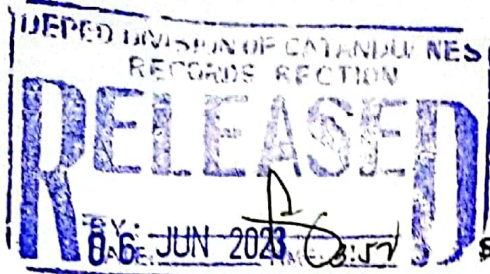 DEPED DIVISION OF CATANDUANES
RECORDS SECTION
RELEASED
BY:
06 JUN 2023 3:57